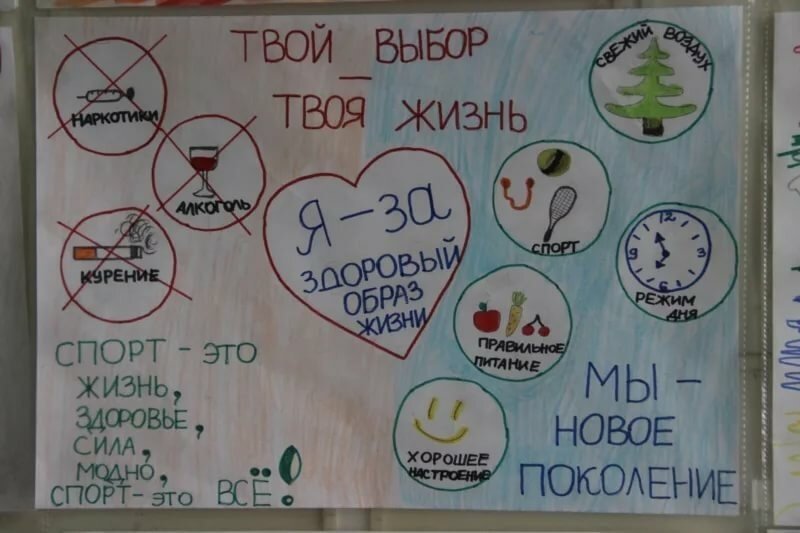 ТВОЙ ВЫБОР
—
ТВОЯ ЖИЗНЬ
НАРКОТИКИ
АЛКОГОЛЬ
КУРЕНИЕ
Я – за
ЗДОРОВЫЙ
ОБРАЗ
ЖИЗНИ
СВЕЖИЙ ВОЗДУХ
СПОРТ
12
3
6
9
РЕЖИМ
ДНЯ
ПРАВИЛЬНОЕ
ПИТАНИЕ
ХОРОШЕЕ
НАСТРОЕНИЕ
СПОРТ – это
ЖИЗНЬ,
ЗДОРОВЬЕ,
СИЛА,
МОДНО,
СПОРТ – это ВСЁ!
МЫ –
НОВОЕ
ПОКОЛЕНИЕ